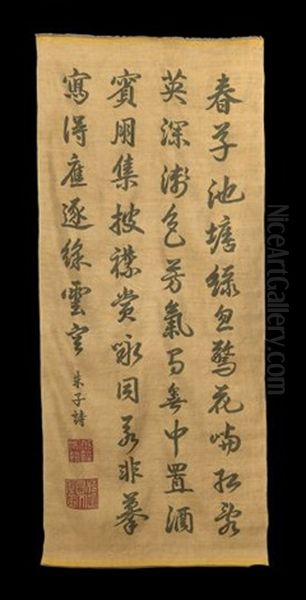 春草池塘綠忽驚花嶼紅
英深淺色芳氣有無中置酒
賓朋集披襟賞咏同若非摹
寫得應逐綵雲空 朱子詩
NiceArtGallery.com